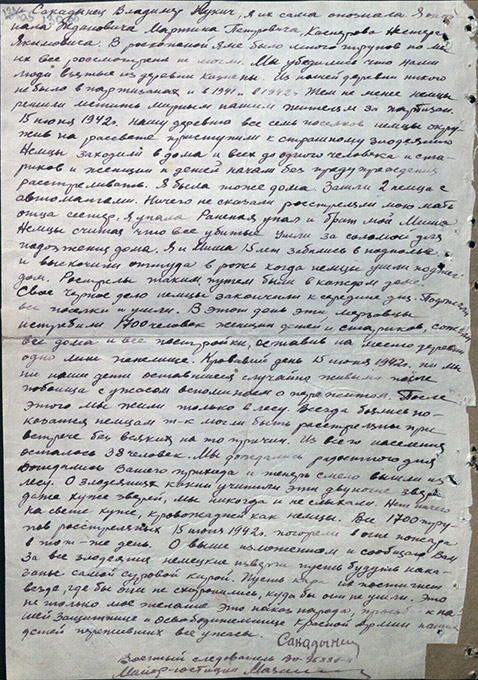 и Санадынец Владимир Лукич, я их сама опознала
пала Ждановича Мартина Петровича, Нестера
Якимовича. В раскопаной яме было много трупов но мы
их все рассмотреть не могли. Мы убедились что наши
люди взятые из деревни казнены. Из нашей деревни никого
не было в партизанах и в 1941 и в 1942г. Тем не менее немцы
решили мстить мирным нашим жителям за партизан.
15 июня 1942г. нашу деревню все семь поселков немцы окру-
жив на рассвете приступили к страшному злодеянию
Немцы заходили в дома и всех до одного человека и ста-
риков и женщин и детей начали без предупреждения
расстреливать. Я была тоже дома. Зашли 2 немца с
автоматами. Ничего не сказали расстреляли мою мать
отца сестер. Я упала Раненая упал и брат мой Миша
Немцы считая что все убитые ушли за соломой для
поджога дома. Я и Миша 15 лет забились в подполье
и выскочили оттуда в рожь когда немцы ушли
дом. Расстрелы таким путем были в каждом доме.
Свое черное дело немцы закончили к середине дня.
все поселки и ушли. В этот день эти мерзавцы
истребили 1700 человек женщин детей и стариков,
все дома и все постройки, оставив на месте деревни
одно лишь пепелище. Кровавый день 15 июня 1942г. ни мы
ни наши дети оставшиеся случайно живыми после
побоища с ужасом вспоминаем о пережитом. После
этого мы жили только в лесу. Всегда боялись по-
казатся немцам т-к могли быть расстреляны при
встрече без всяких на то причин. Из всего населения
осталось 38 человек. Мы дождались радостного дня
дождались Вашего прихода и теперь смело вышли из
лесу. О злодеяниях какии учинили эти двуногие звери
даже хуже зверей, мы никогда и не слыхали. Нет ничего
на свете хуже, кровожадней как немцы. Все 1700 тру-
пов расстреляных 15 июня 1942г. погорели в огне пожара
в тот-же день. О выше изложенном и сообщаю Вам
За все злодеяния немецкие изверги пусть будут нака-
заные самой суровой карой. Пусть кара их постигнет
везде, где бы они не схоронились, куда бы они не ушли. Это
не только мое желание это наказ народа, просьба к на-
шей Защитнице и освободительнице Красной Армии наших
детей переживших все ужасы.
Санадынец
Военный следователь ВП-
Майор-юстиции